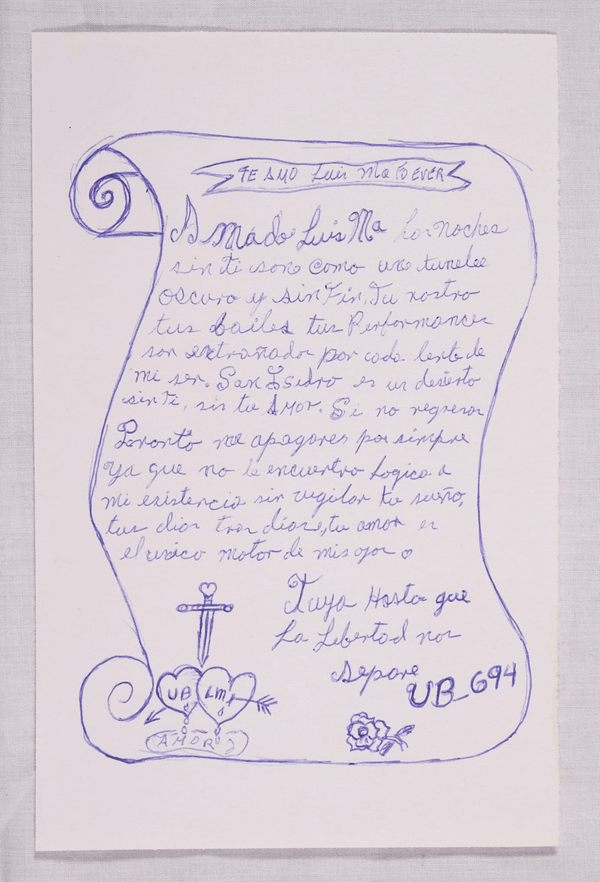 TE AMO Luis Ma FO EVER
Amado Luis Ma las noches
sin ti son como un tunelee
oscuro y sin Fin, Tu rostro
tus bailes tus Performances
son extrañados por cada lente de
mi ser. San Isidro es un desierto
sin ti, sin tu AMOR. Si no regresas
Pronto me apagares por simpre
ya que no le encuentro Logica a
mi existencia sin vigilar tu sueño,
tus dias tras dias, tu amor es
el unico motor de mis ojos
Tuya Hasta que
La Libertad nos
separe
UB_694
UB LM
AMOR